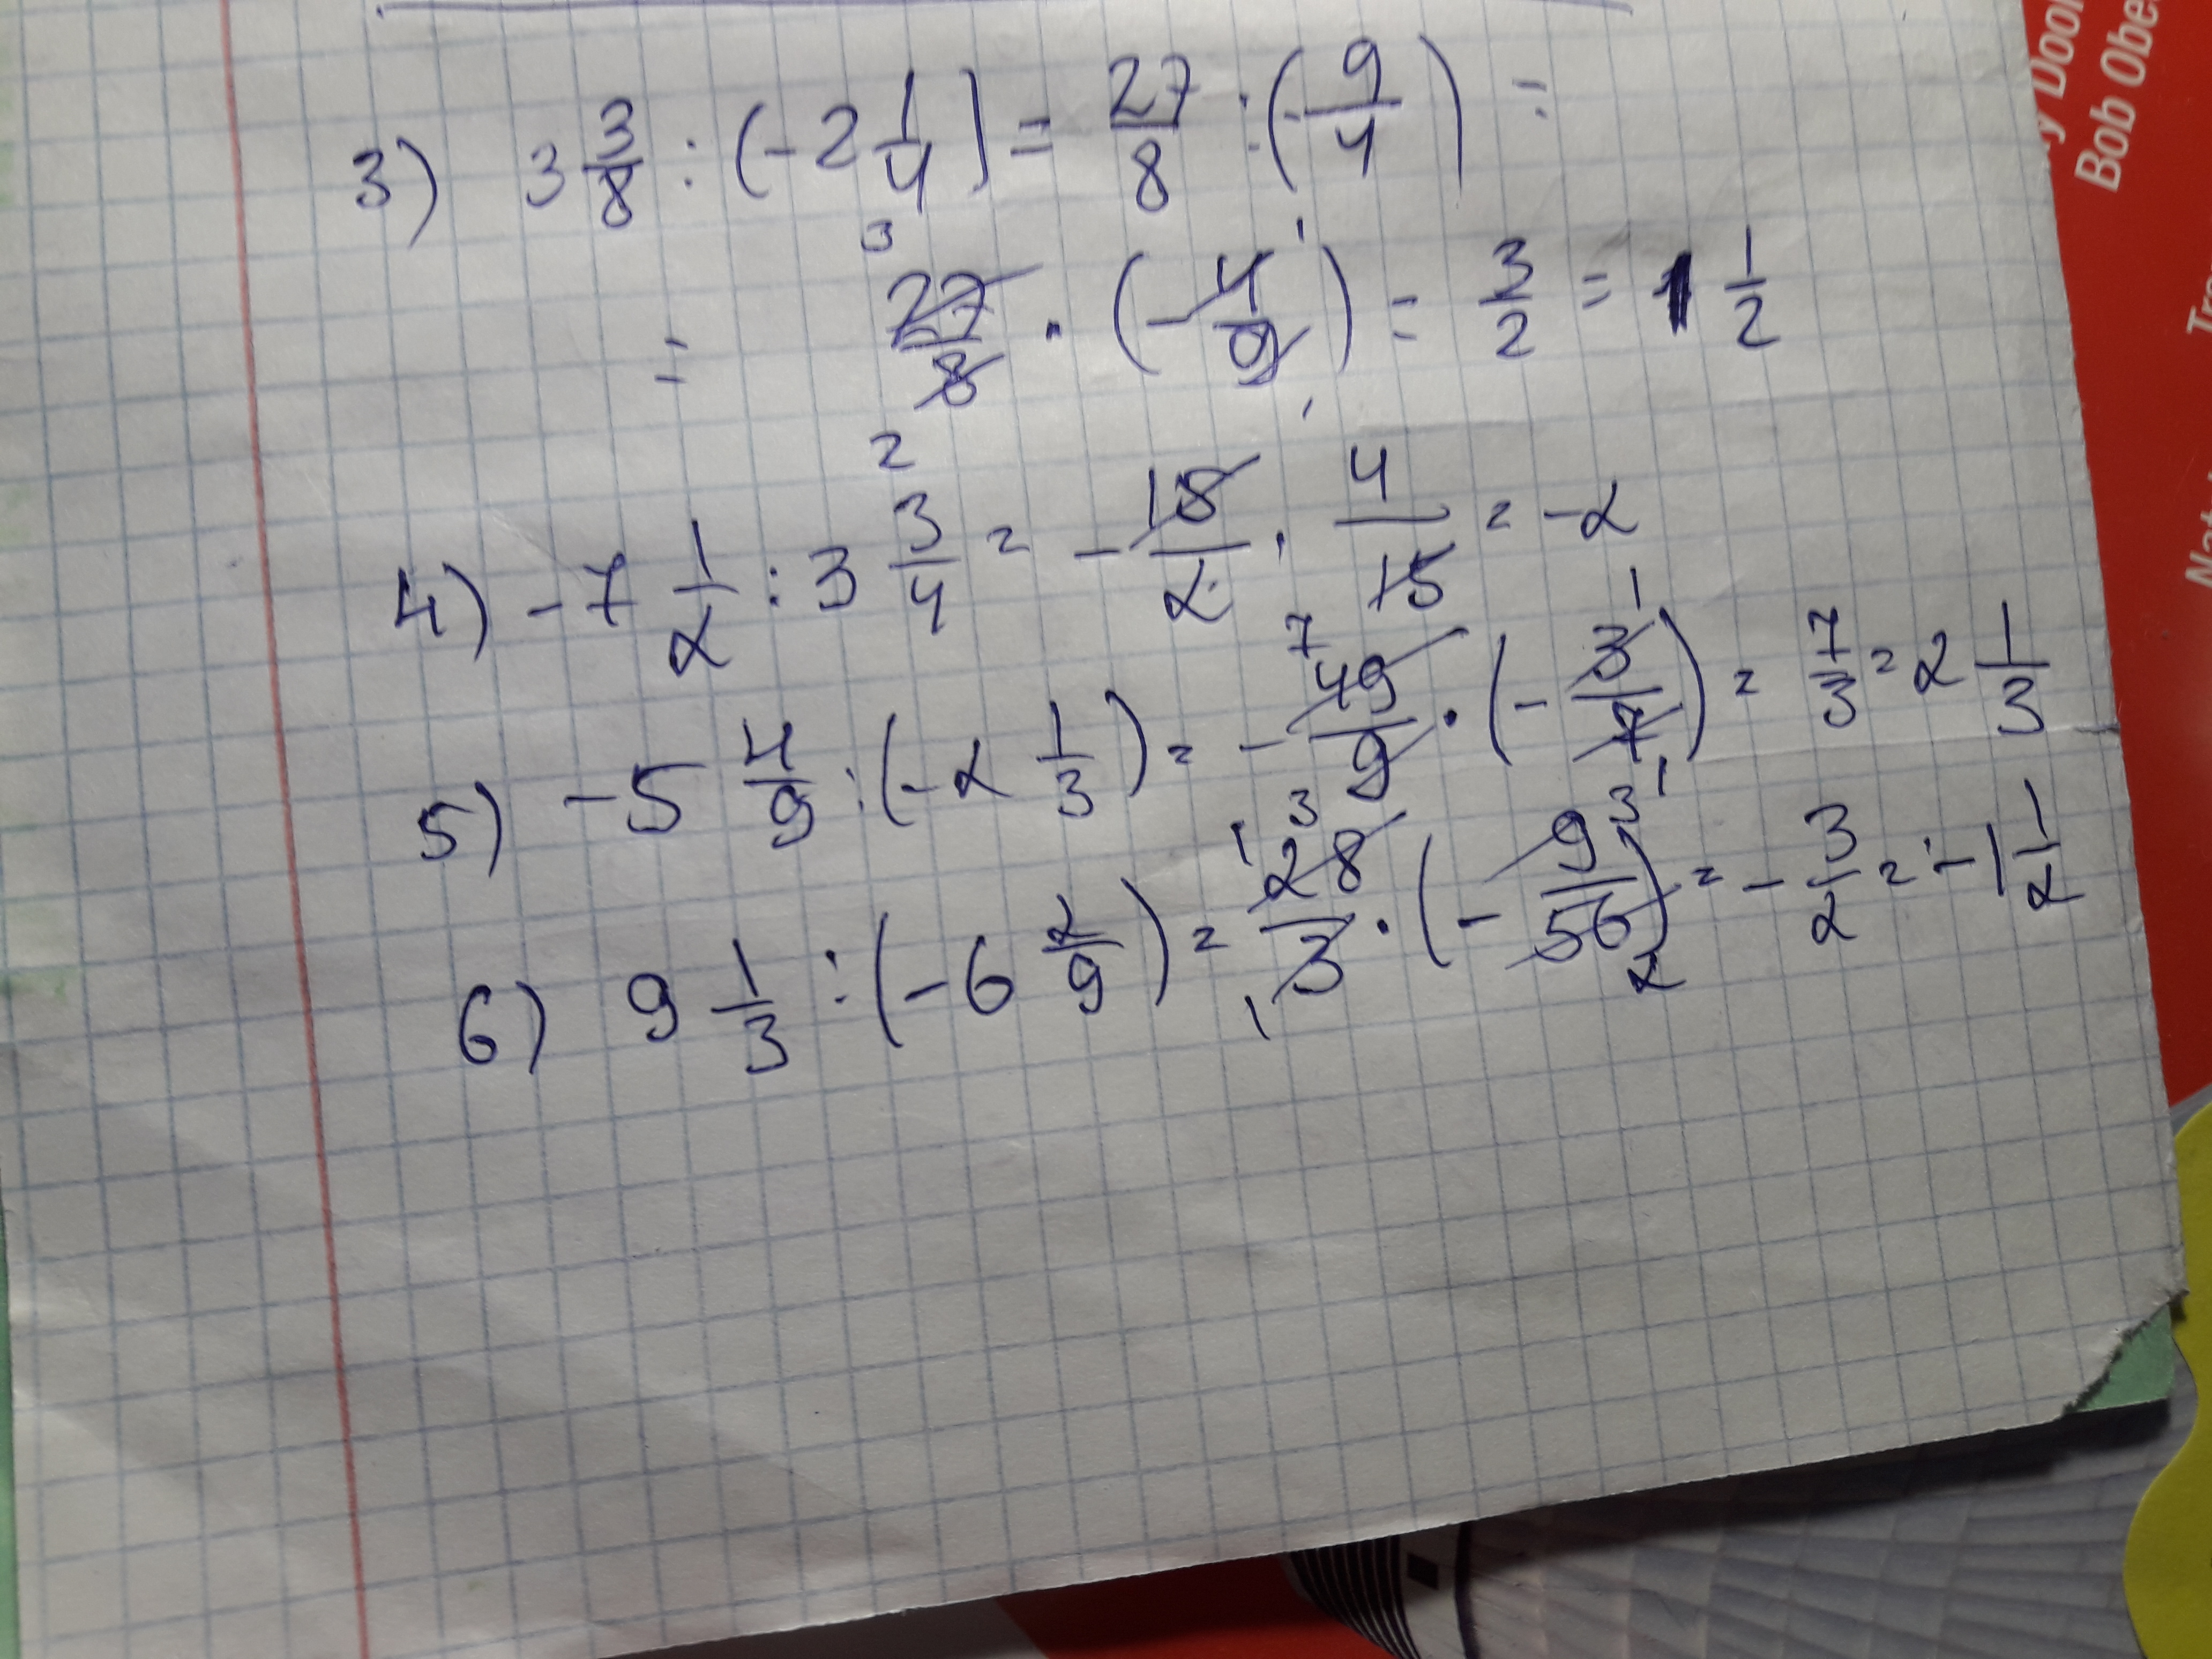 3) 3 3/8 : (-2 1/4) = 27/8 : (-9/4) =
3 1
= 27/8 · (-4/9) = 3/2 = 1 1/2
2 1
4) -7 1/2 : 3 3/4 = -15/2 · 4/15 = -2
7 1
5) -5 4/9 : (-2 1/3) = -49/9 · (-3/7) = 7/3 = 2 1/3
3 1
1 3
6) 9 1/3 : (-6 2/9) = 28/3 · (-9/56) = -3/2 = -1 1/2
1 2
Bob Obe